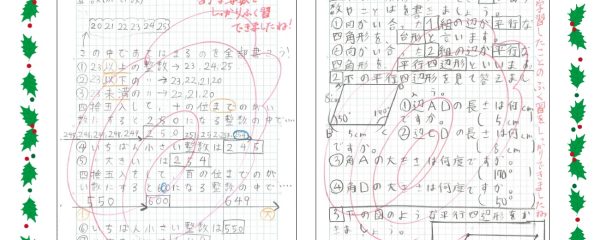 しっかりふく習
できましたね!
20 21 22 23 24 25
この中であてはまるのを全部書こう!
①23以上の整数→23.24.25
②23以下の〃→23.22.21.20
③23未満の〃→22.21.20
四捨五入して、十の位までのがい
数にすると250になる整数の中で…
④いちばん小さい整数は245
⑤〃大きい〃は254
四捨五入をして、百の位までのが
い数にすると600になる整数の中で…
550 600 649
⑥いちばん小さい整数は550
①向かい合う1組の辺が平行な
四角形を、台形といいます。
②向かい合う2組の辺が平行な
四角形を、平行四辺形といいます。
2 下の平行四辺形を見て答えましょう
①辺ADの長さは何cm
ですか。(5cm)
②辺CDの長さは何cm
ですか。
③角Aの大きさは何度ですか。
④角Dの大きさは何度ですか。
(50°)
3 下の図のような平行四辺形をか
きましょう。
学習したことのふく習をしっかりできましたね